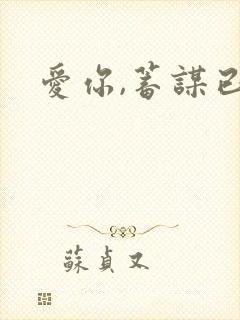 愛你,蓄謀已
蘇貞又